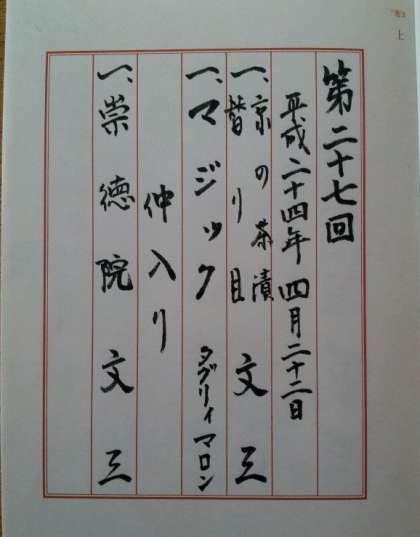 上
第二十七回
平成二十四年 四月二十二日
一、京の茶漬
替り目 文三
一、マジック タグリィマロン
仲入り
一、崇徳院 文三